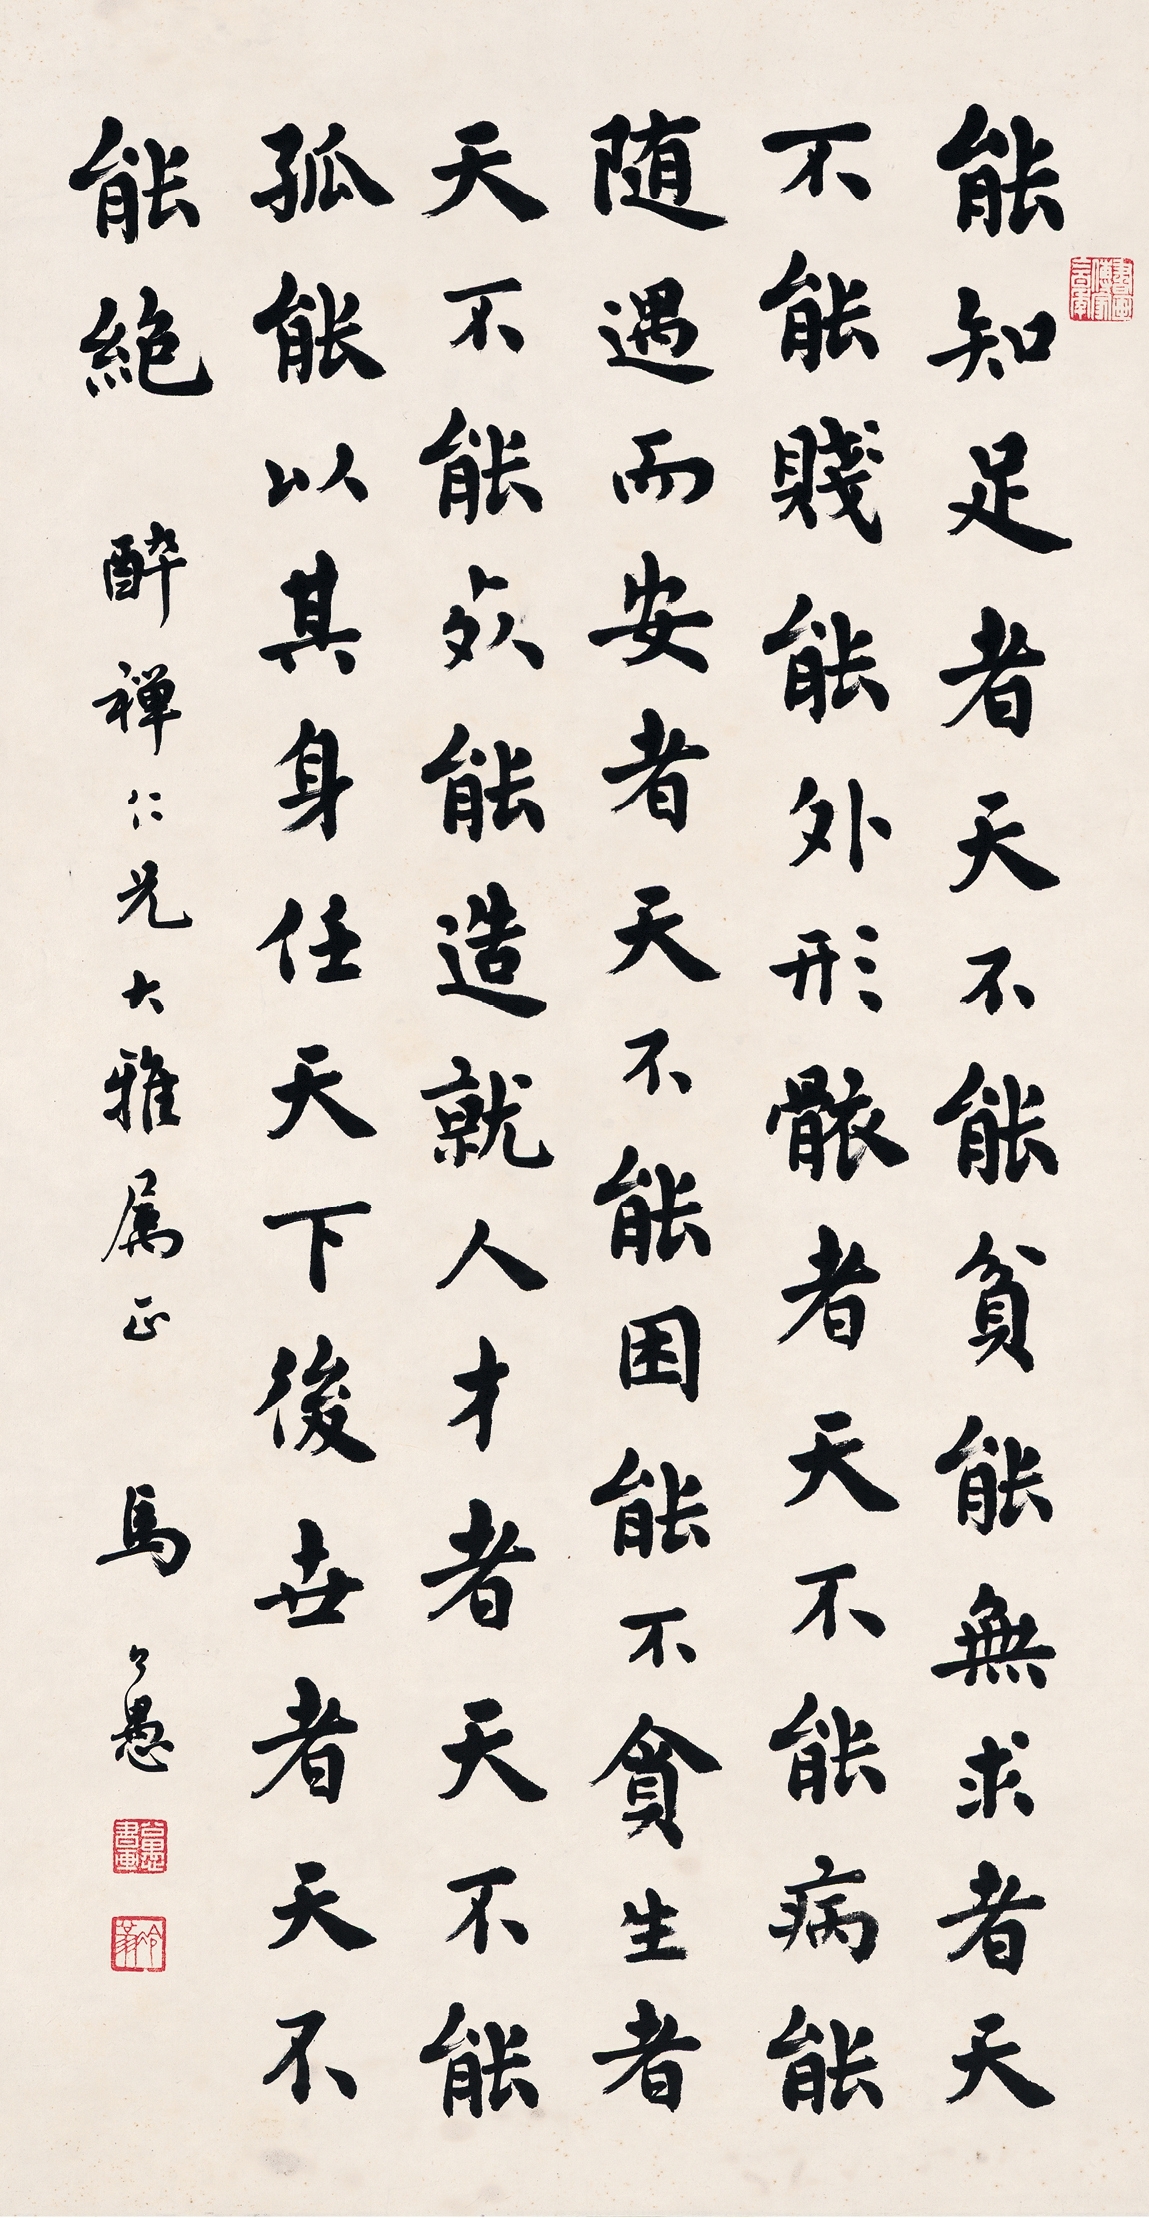 能知足者天不能貧能無求者天
不能賤能外形骸者天不能病能
随遇而安者天不能困能不貪生者
天不能死能造就人才者天不能
孤能以其身任天下後世者天不
能絶
醉禅仁兄大雅属正
馬公愚
公愚書畫
冷篆
書畫傳家